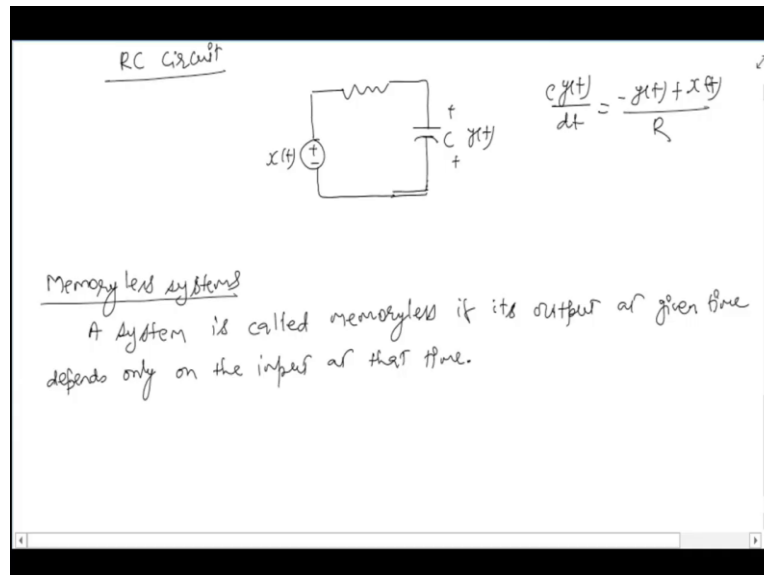 RC Circuit
C y(t) / dt = -y(t) + x(t) / R
+
x(t) + -
C y(t)
+
Memoryless systems
A system is called memoryless if its output at given time
depends only on the input at that time.